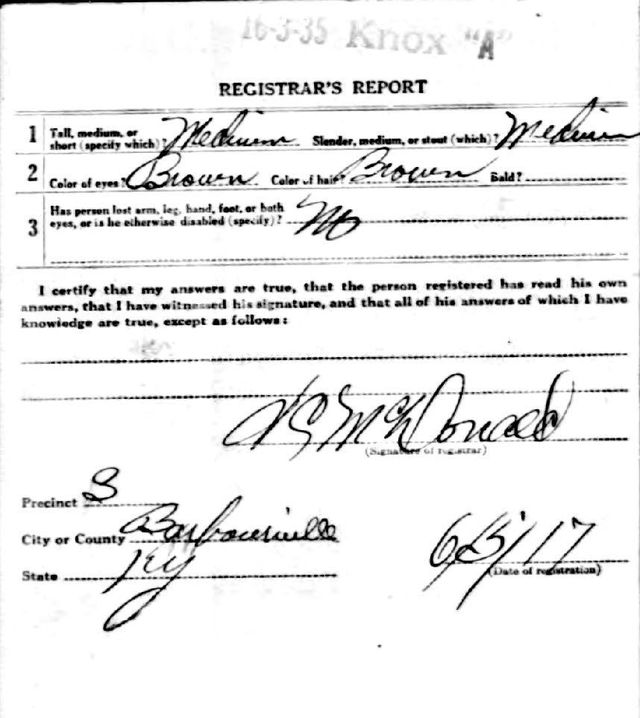 16-3-35 Knox "A"
REGISTRAR'S REPORT
1 Tall, medium, or short (specify which)? Medium Slender, medium, or stout (which)? Medium
2 Color of eyes? Brown Color of hair? Brown Bald?
3 Has person lost arm, leg, hand, foot, or both
eyes, or is he otherwise disabled (specify)? No
I certify that my answers are true, that the person registered has read his own
answers, that I have witnessed his signature, and that all of his answers of which I have
knowledge are true, except as follows:
McDonald
(Signature of registrar)
Precinct 3
City or County Barbourville
State Ky
6/5/17
(Date of registration)